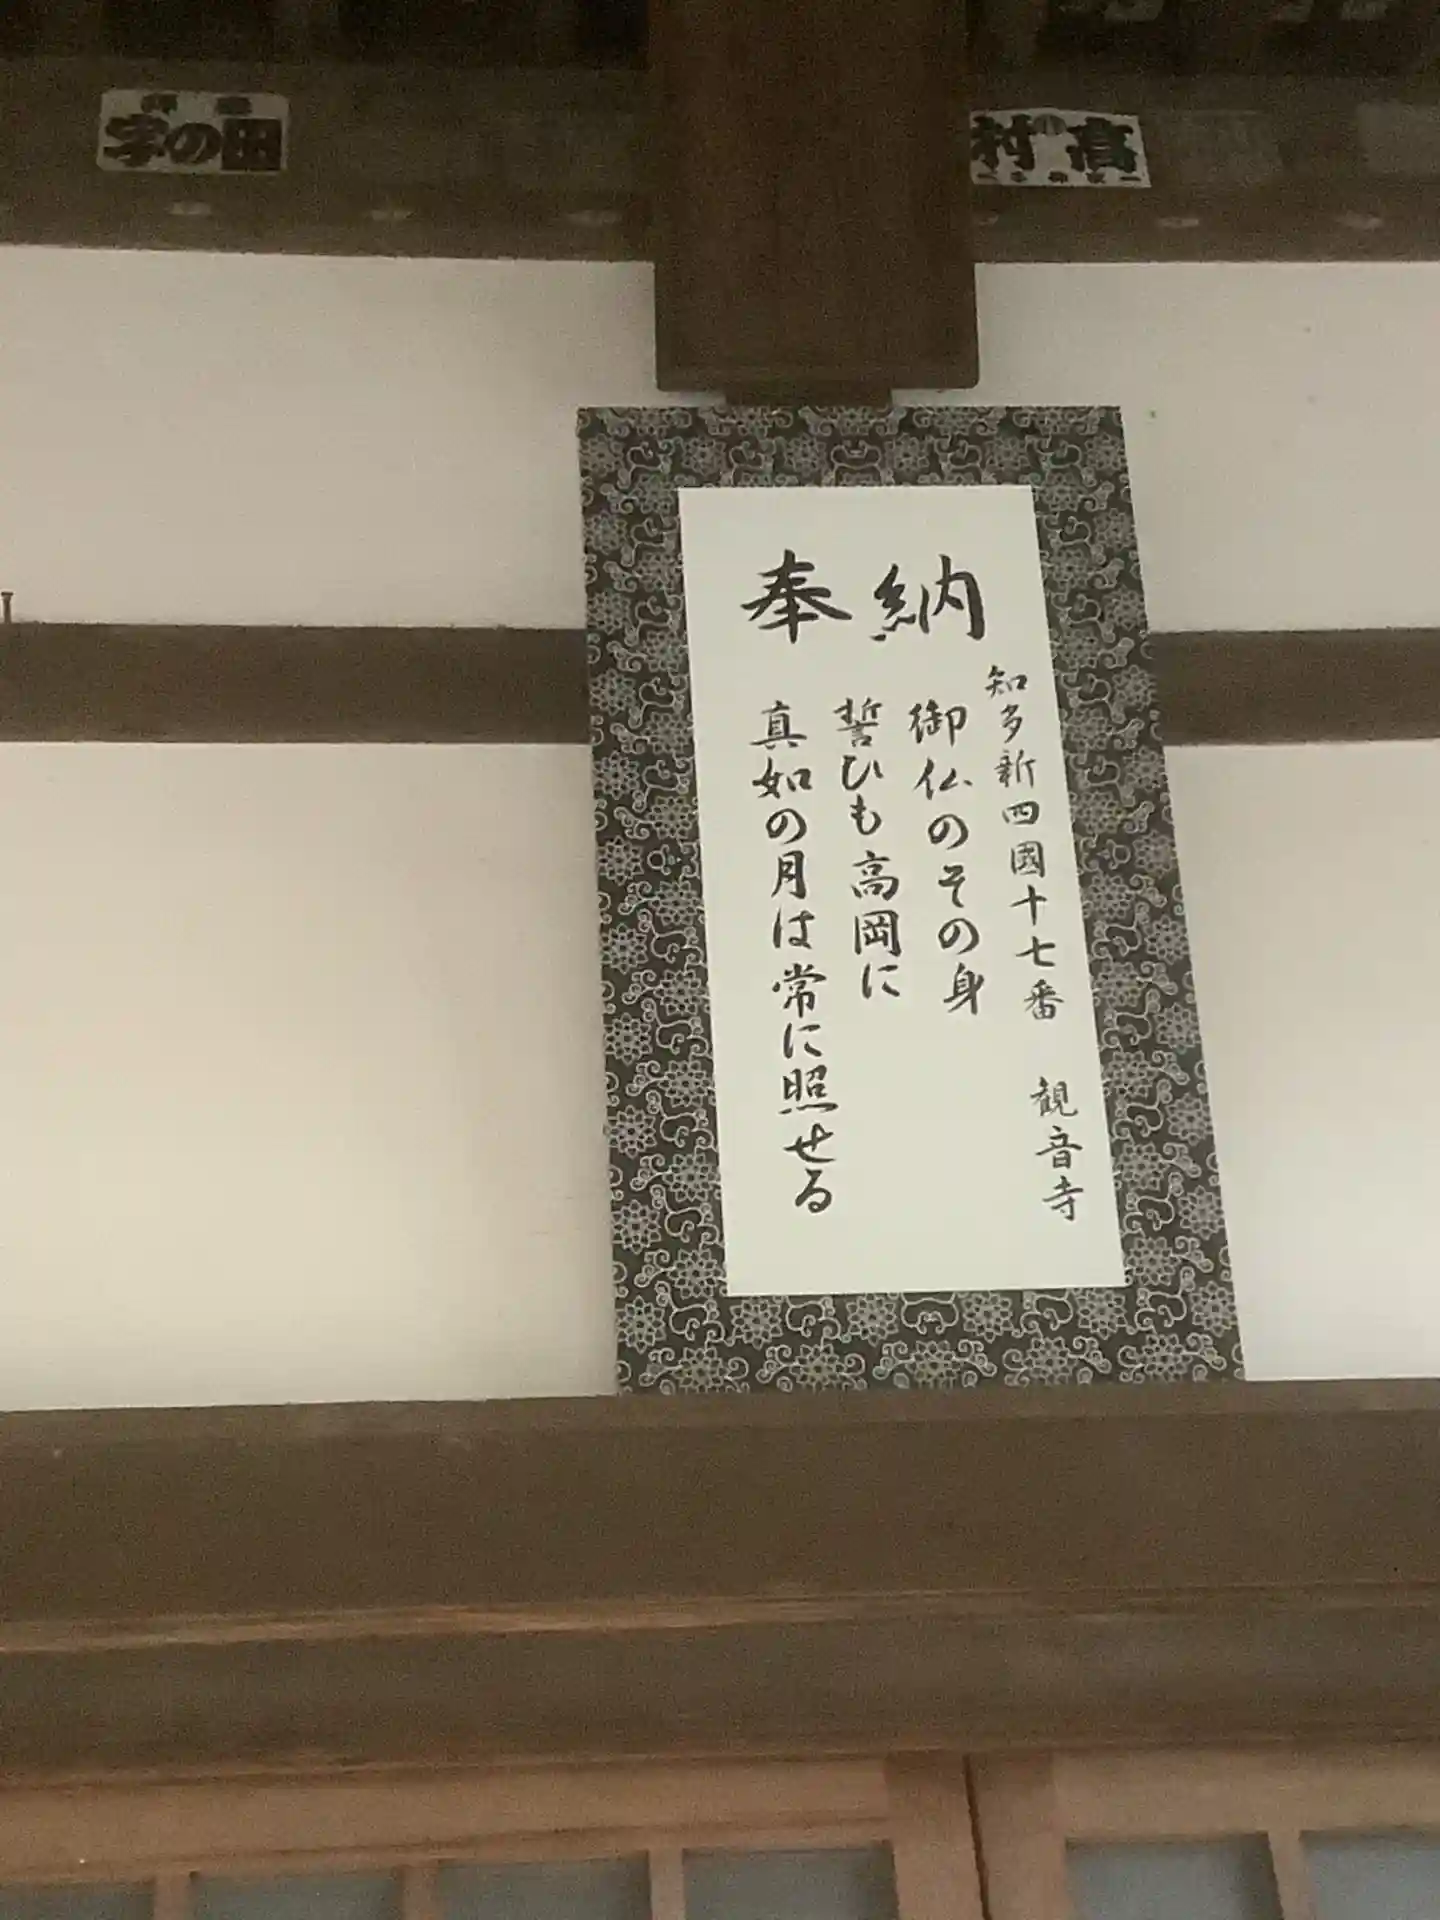 田の字
高村
奉納
知多新四國十七番 観音寺
御仏のその身
誓ひも高岡に
真如の月は常に照せる